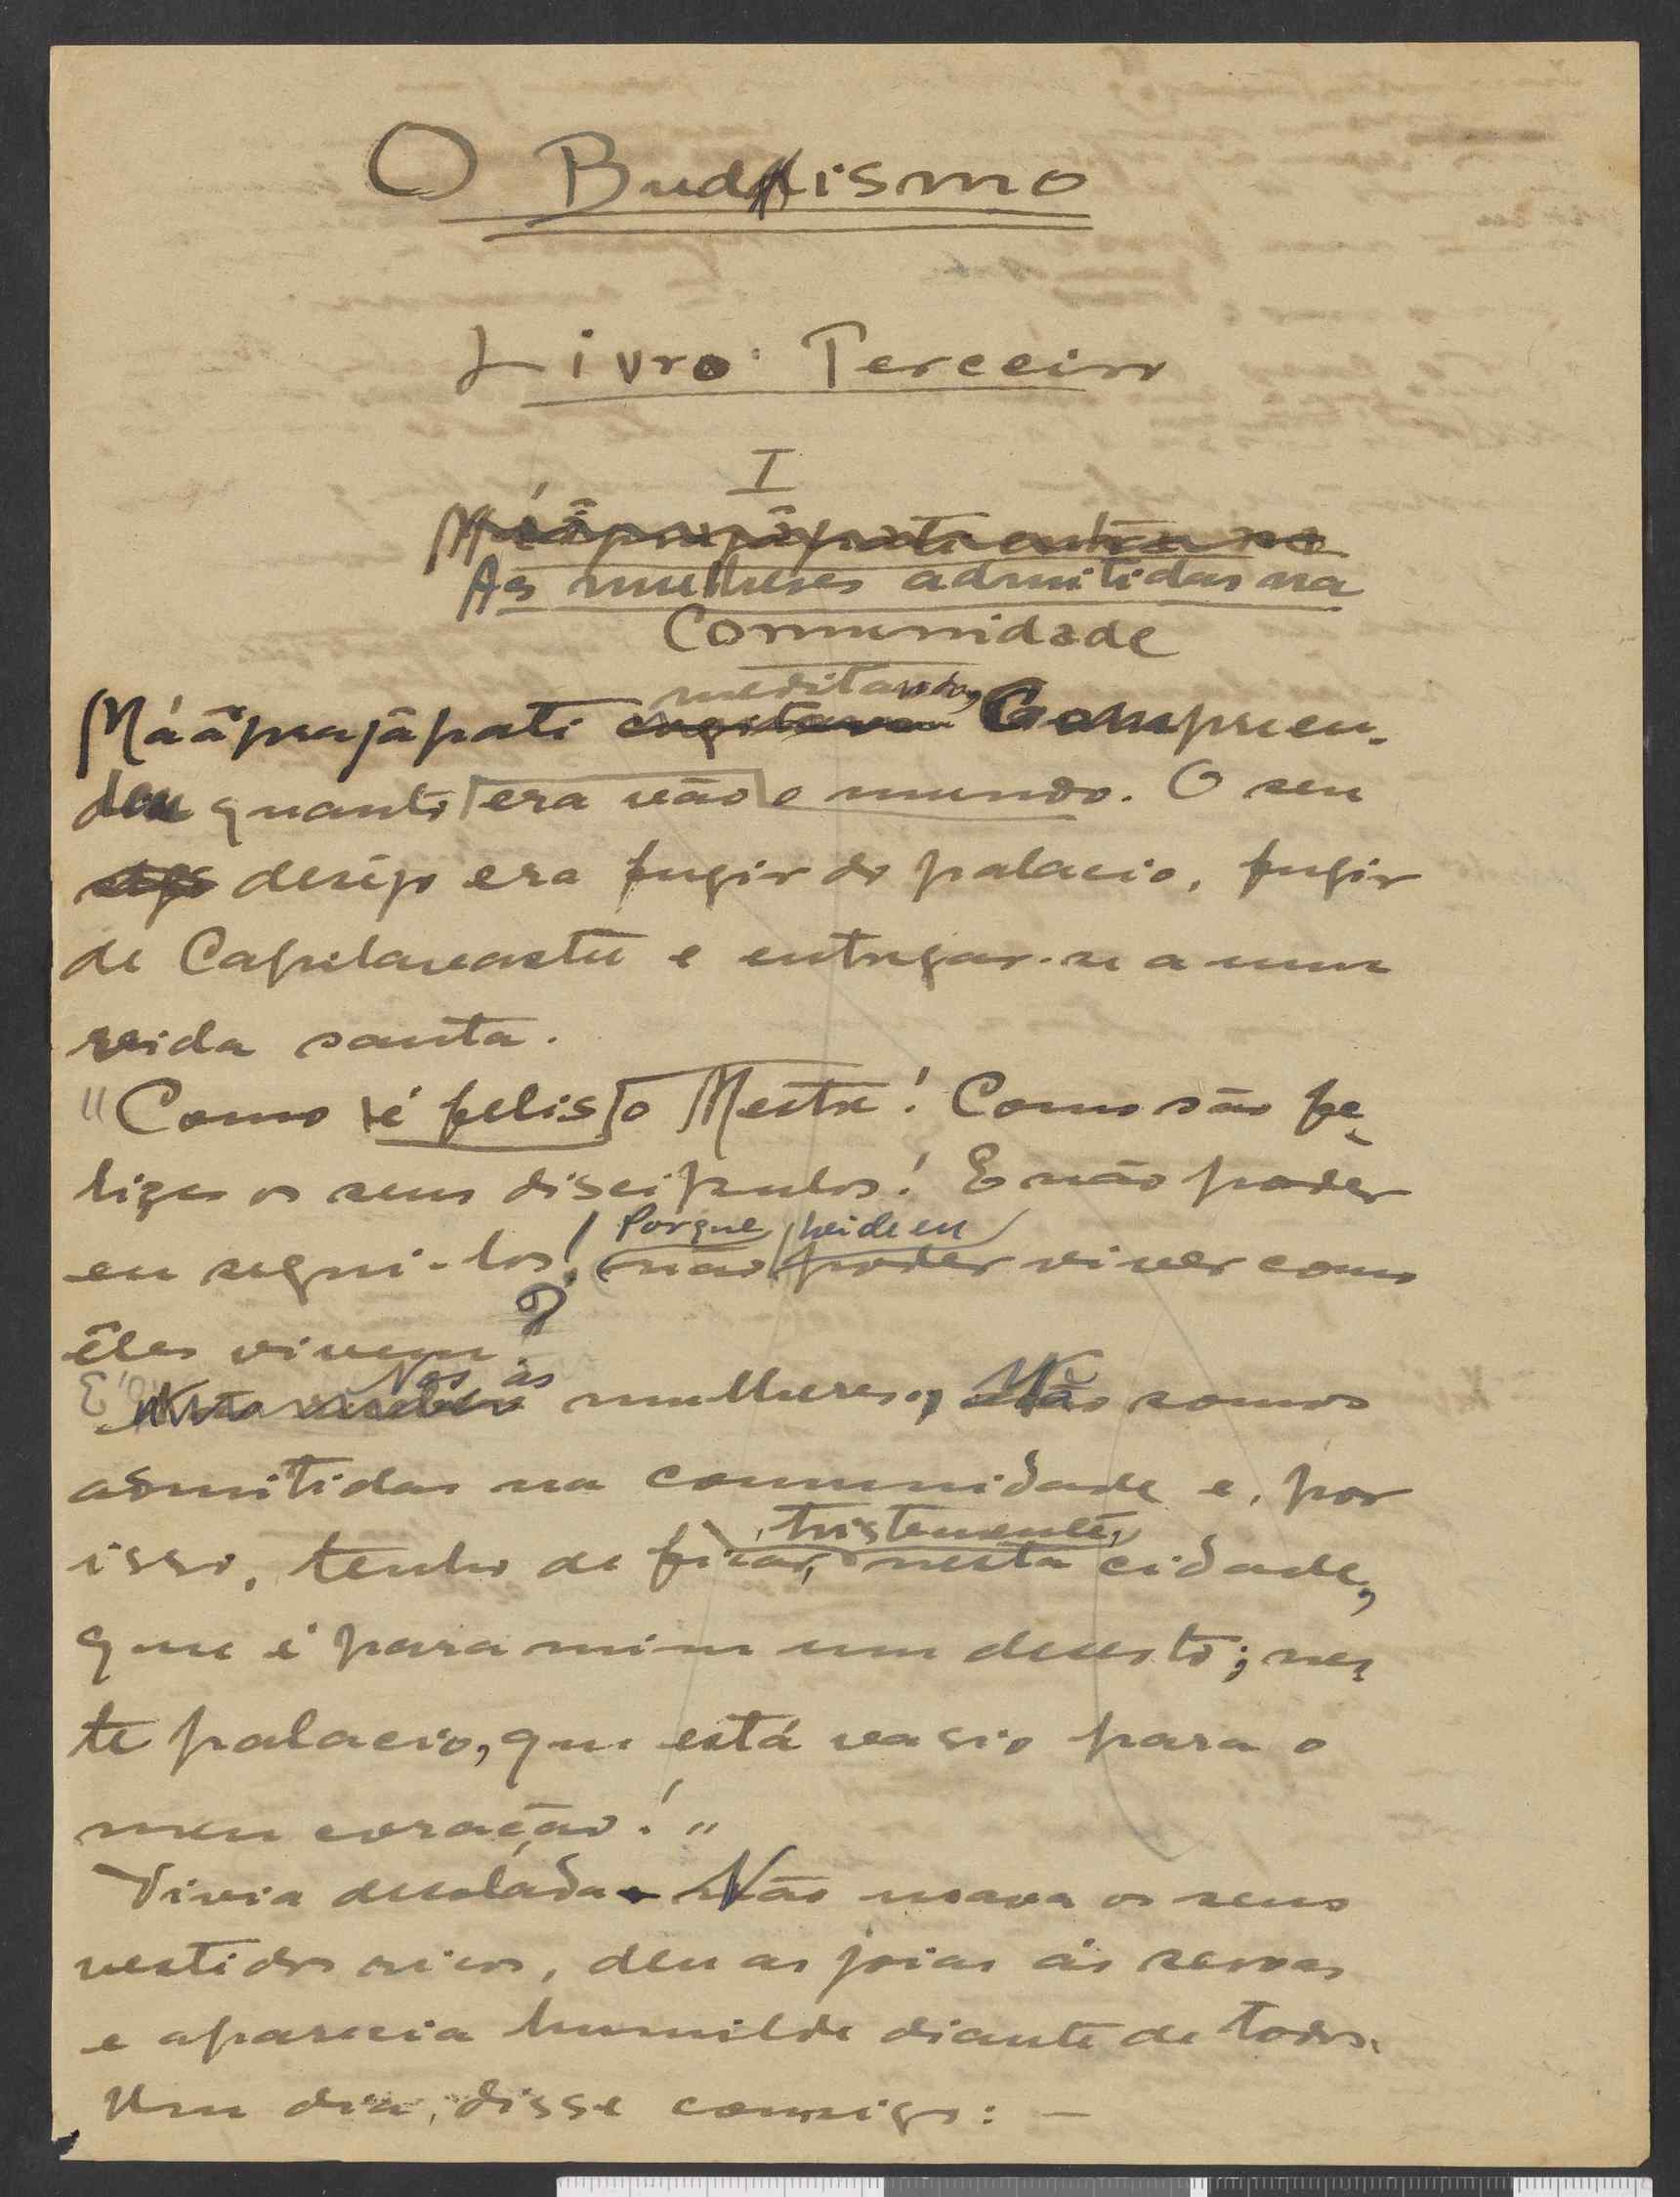 O Budismo
Livro Terceiro
I
As mulheres admitidas na
Comunidade
meditando,
Máâprajâpati Compreen-
deu quanto era vão o mundo. O seu
desejo era fugir do palacio, fugir
de Capilavastu e entregar-se a uma
vida santa.
"Como é felis o Mestre! Como são fe-
lizes os seus discipulos! E não poder
Porque heide eu
eu segui-los! não poder viver como
êles vivem?
Nos as
mulheres, Não somos
admitidas na comunidade e, por
tristemente,
isso, tenho de ficar, nesta cidade,
que é para mim um deserto; nes-
te palacio, que está vasio para o
meu coração!"
Vivia desoláda. Não usava os seus
vestidos ricos, deu as joias ás servas
e aparecia humilde diante de todos.
Um dia, disse comsigo: —